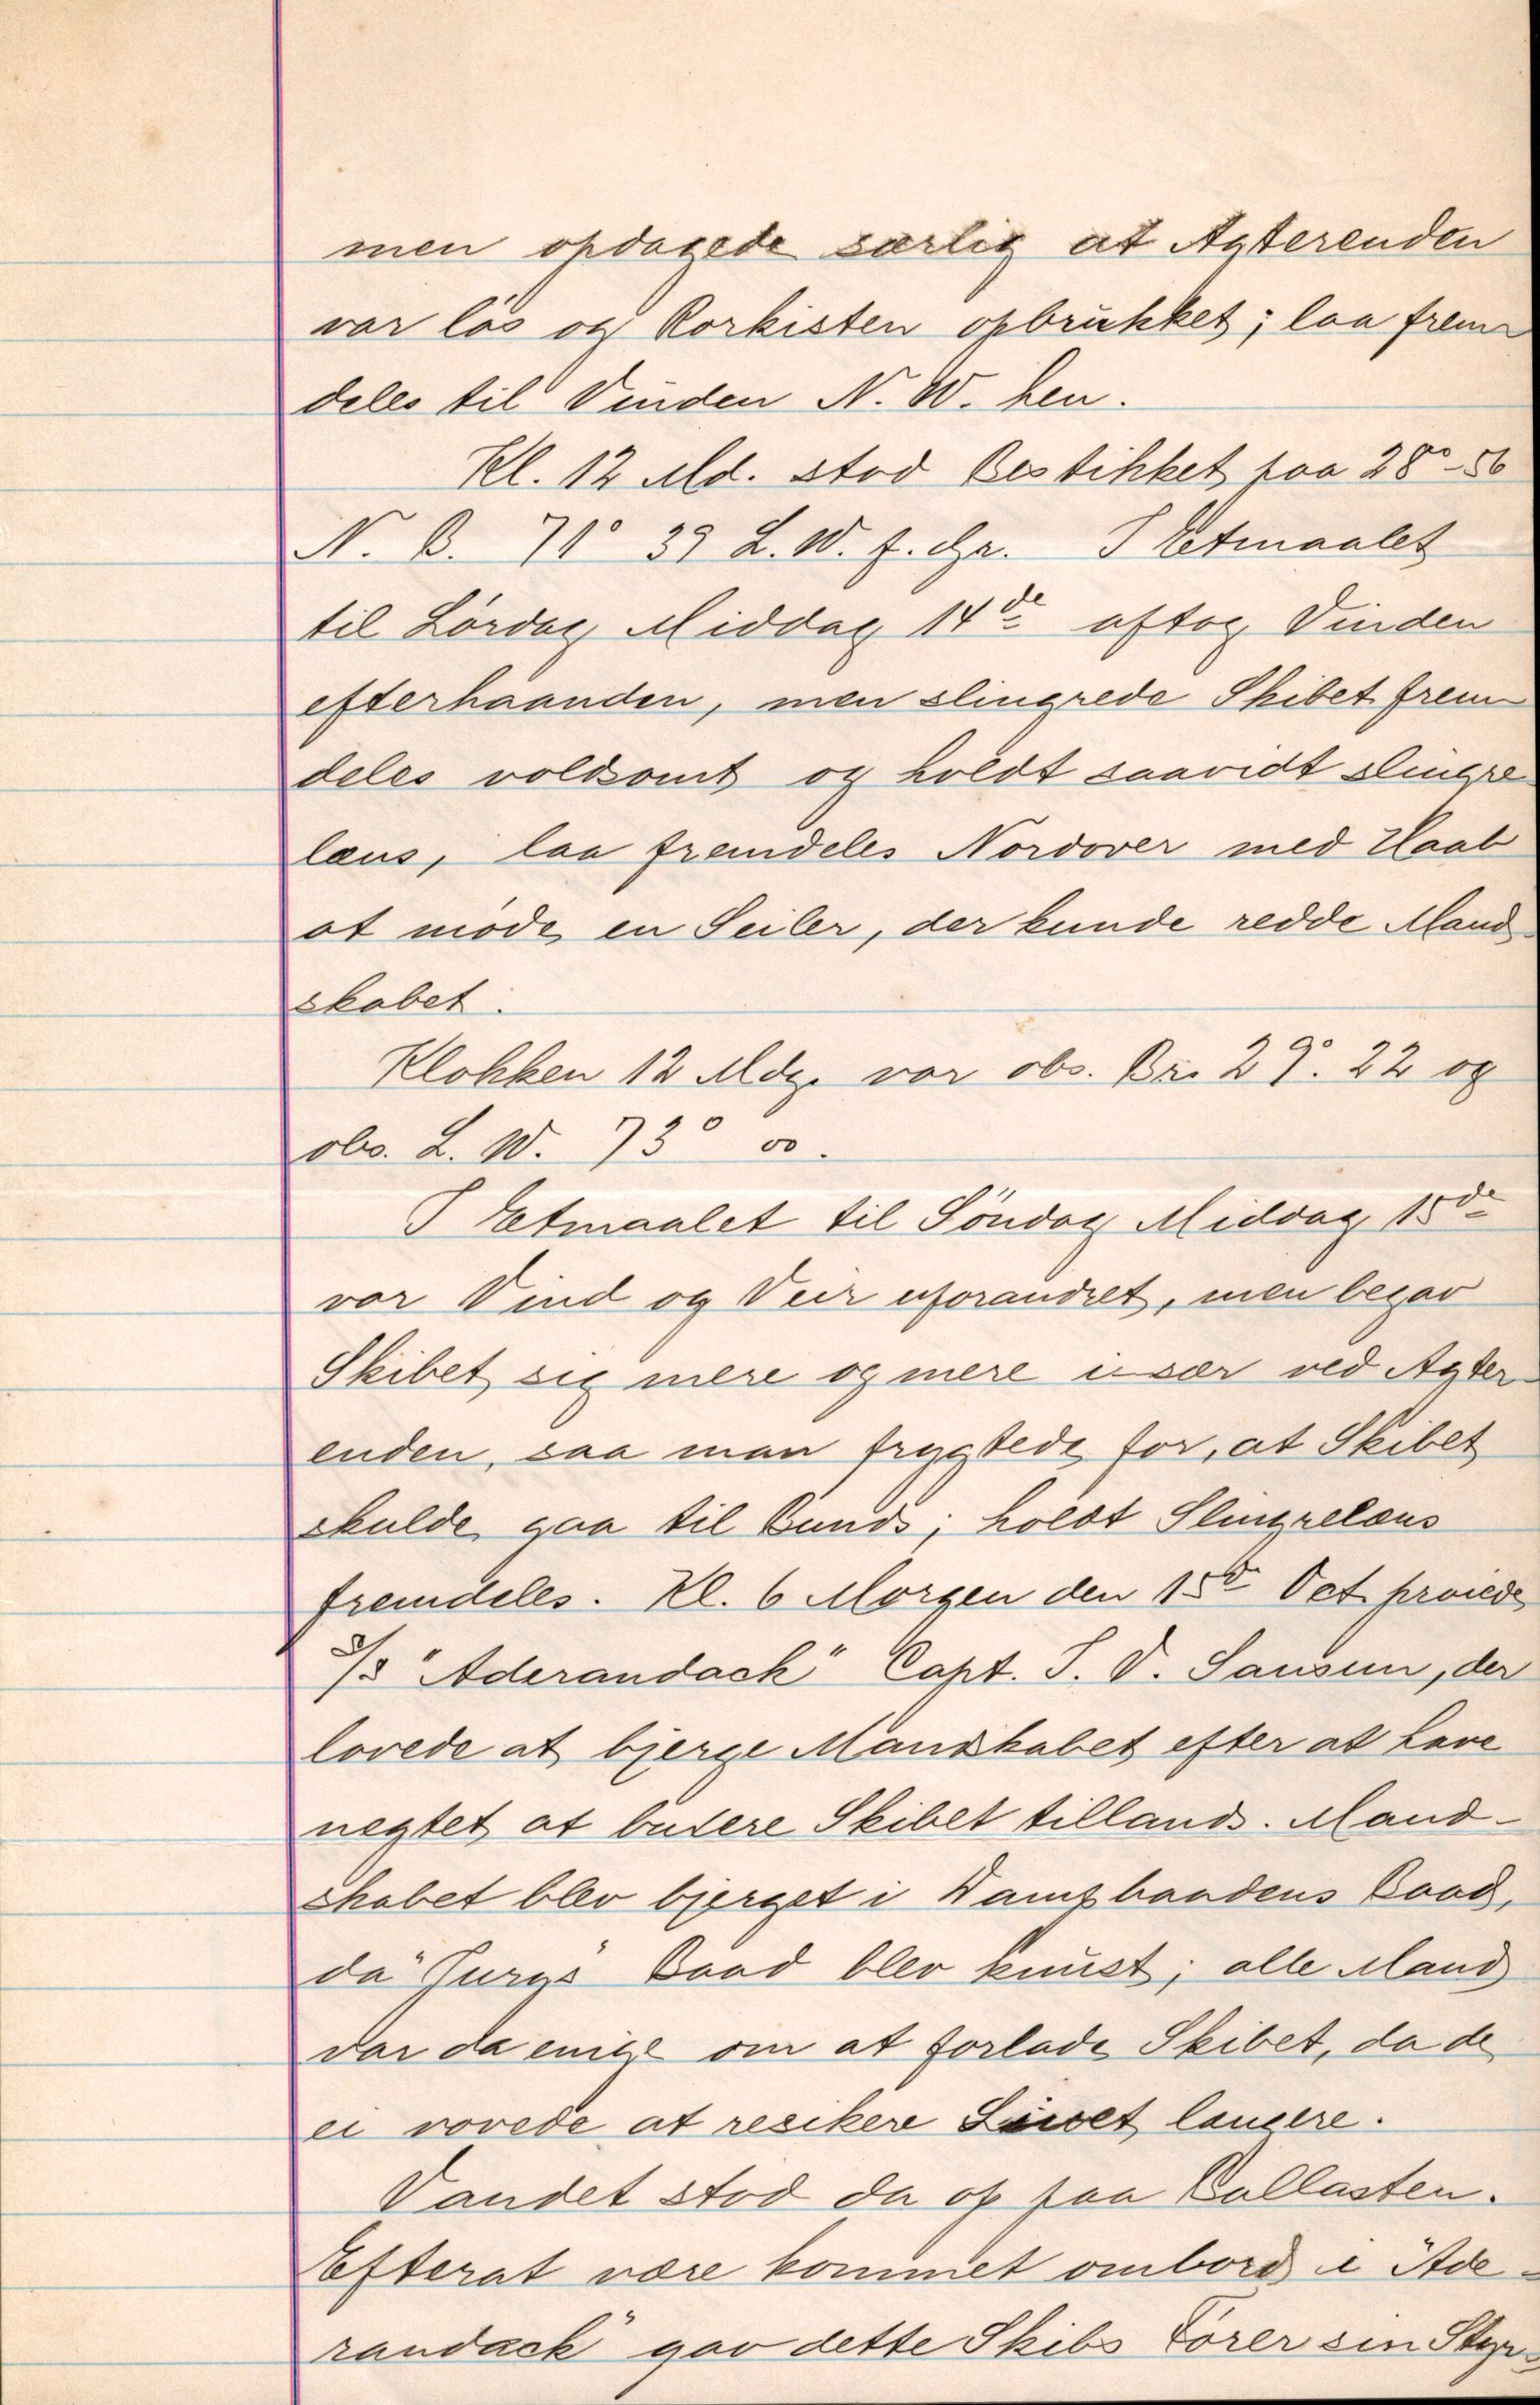 men opdagede særlig at Agterenden
var løs og Rorkisten opbrükket; laa frem
deles til Vinden N. W. hen.
Kl. 12 Md. stod Bestikket paa 28° - 56
N. B. 71° 39 L. W. f. Gr. I Etmaalet
til Lørdag Middag 14de aftog Vinden
efterhaanden, men slingrede Skibet frem
deles voldsomt og holdt saavidt slingre
læns, laa fremdeles Nordover med Haab
at møde en Seiler, der kunde redde Mand-
skabet.
Klokken 12 Mdg. var obs. Br. 29°. 22 og
obs. L. W. 73° 00.
I Etmaalet til Söndag Middag 15de
var Vind og Veir uforandret, men begav
Skibet sig mere og mere især ved Agter-
enden, saa man frygtede for, at Skibet
skulde gaa til Bunds; holdt Slingrelæns
fremdeles. Kl. 6 Morgen den 15de Oct. praiede
S/S "Aderandack" Capt. S. V. Sansum, der
lovede at bjerge Mandskabet efter at have
negtet at buxere Skibet tillands. Mand-
skabet blev bjerget i Dampbaadens Baad,
da "Jurys" Baad blev knust; alle Mand
var da enige om at forlade Skibet, da de
ei vovede at resikere Livet længere.
Vandet stod da op paa Ballasten.
Efterat være kommet ombord i "Ade-
randack" gav dette Skibs Fører sin Styr-